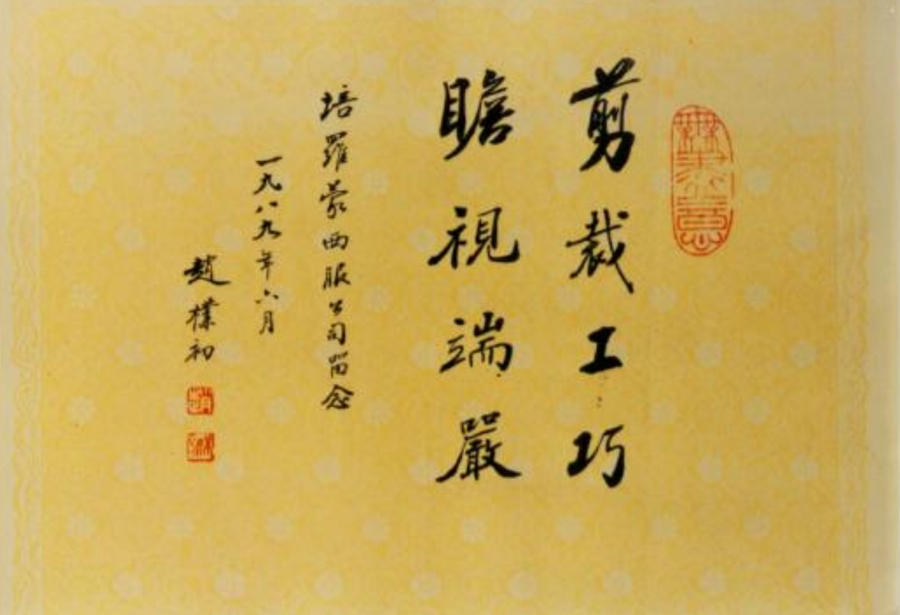 剪裁工巧
瞻視端嚴
培羅蒙西服公司留念
一九八九年六月
趙樸初
無盡意
趙